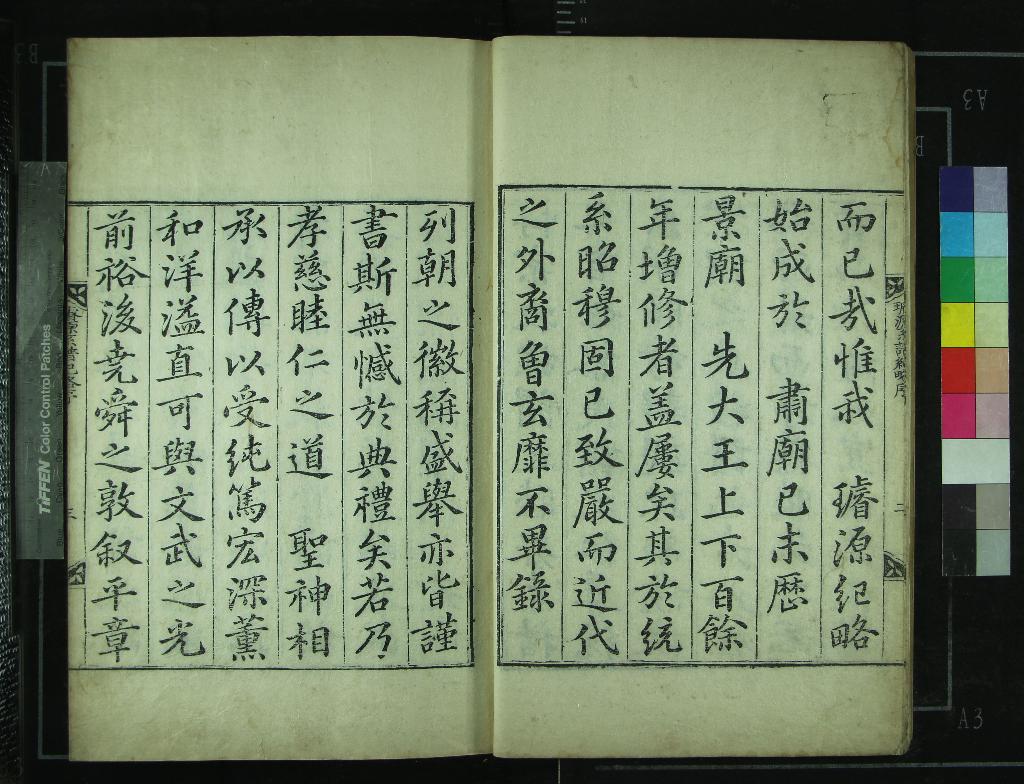 而已哉惟我　璿源紀略
始成於　肅廟己未歷
景廟　先大王上下百餘
年增修者盖屢矣其於統
系昭穆固已致嚴而近代
之外裔魯玄靡不畢錄
列朝之徽稱盛舉亦皆謹
書斯無憾於典禮矣若乃
孝慈睦仁之道　聖神相
承以傳以受純篤宏深薰
和洋溢直可與文武之光
前裕後堯舜之敦叙平章
二
三
TIFFEN Color Control Patches
A3
A3
B3
B